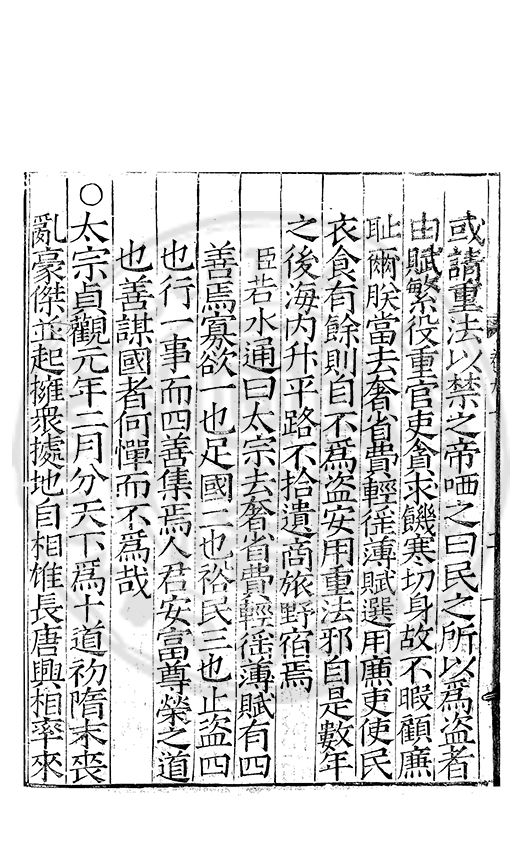 或請重法以禁之帝哂之曰民之所以爲盜者
由賦繁役重官吏貪求饑寒切身故不暇顧廉
耻爾朕當去奢省費輕徭薄賦選用廉吏使民
衣食有餘則自不爲盜安用重法邪自是數年
之後海內升平路不拾遺商旅野宿焉
臣若水通曰太宗去奢省費輕徭薄賦有四
善焉寡欲一也足國二也裕民三也止盜四
也行一事而四善集焉人君安富尊榮之道
也善謀國者何憚而不爲哉
○太宗貞觀元年二月分天下爲十道初隋末喪
亂豪傑並起擁衆據地自相雄長唐興相率來